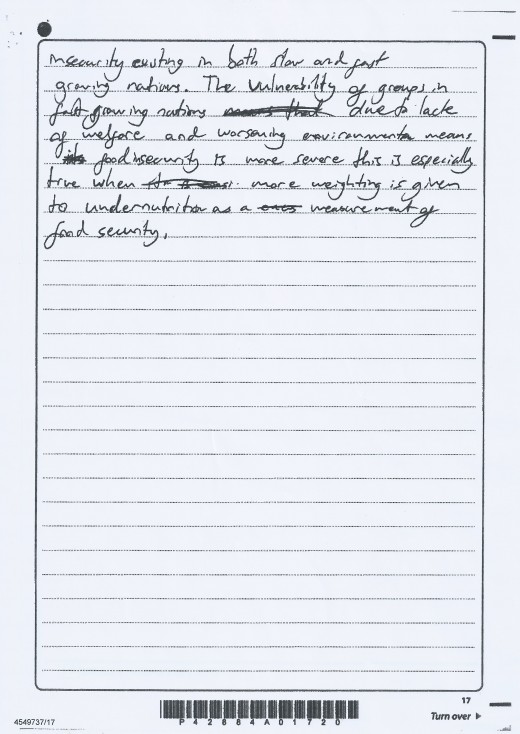 insecurity existing in both slow and fast
growing nations. The vulnerability of groups in
fast growing nations due to lack
of welfare and worsening environments means
food insecurity is more severe this is especially
true when more weighting is given
to undernutrition as a measurement of
food security.
17
Turn over
4549737/17
P42884A01720